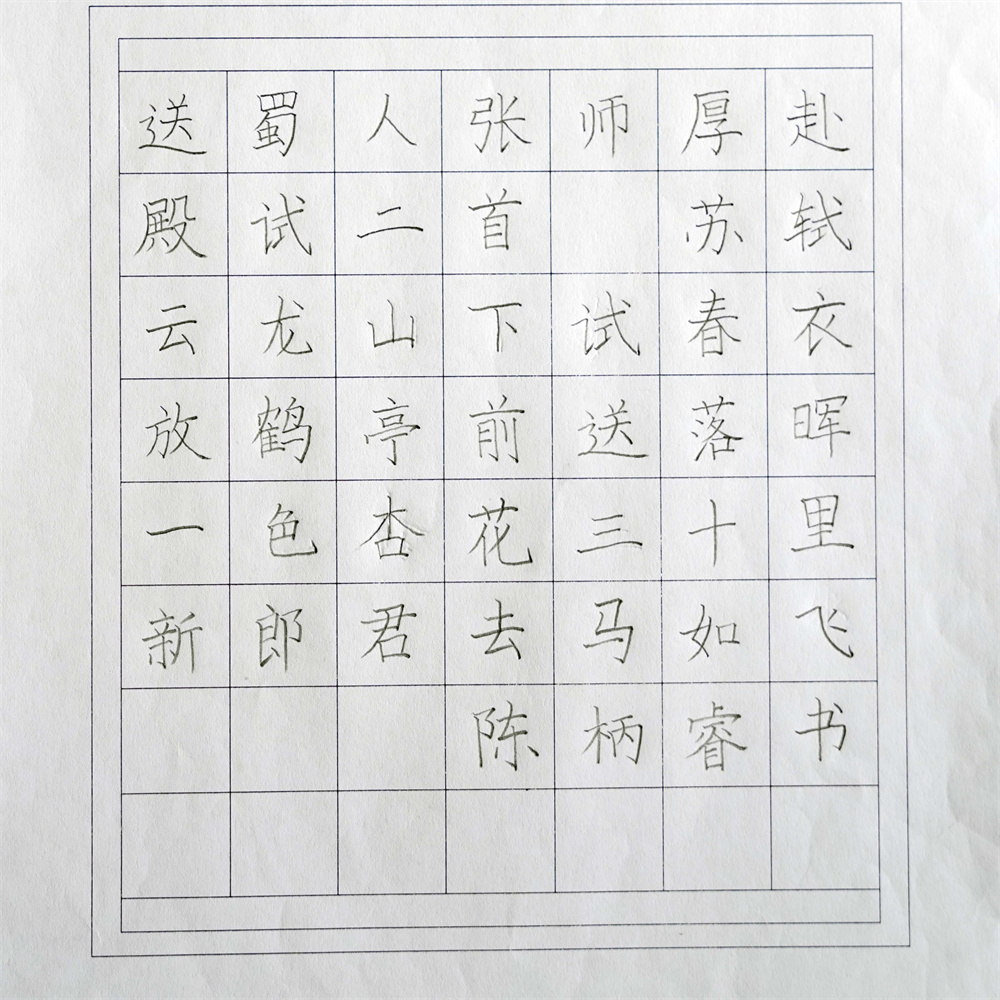 送蜀人张师厚赴
殿试二首 苏轼
云龙山下试春衣
放鹤亭前送落晖
一色杏花三十里
新郎君去马如飞
陈柄睿书